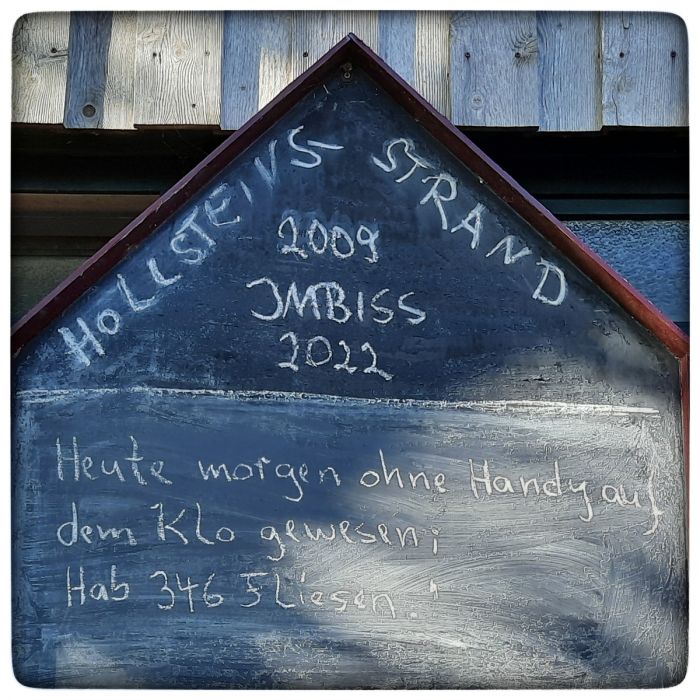 HOLLSTEINS STRAND
2009
IMBISS
2022
Heute morgen ohne Handy auf
dem Klo gewesen;
Hab 346 Fliesen!